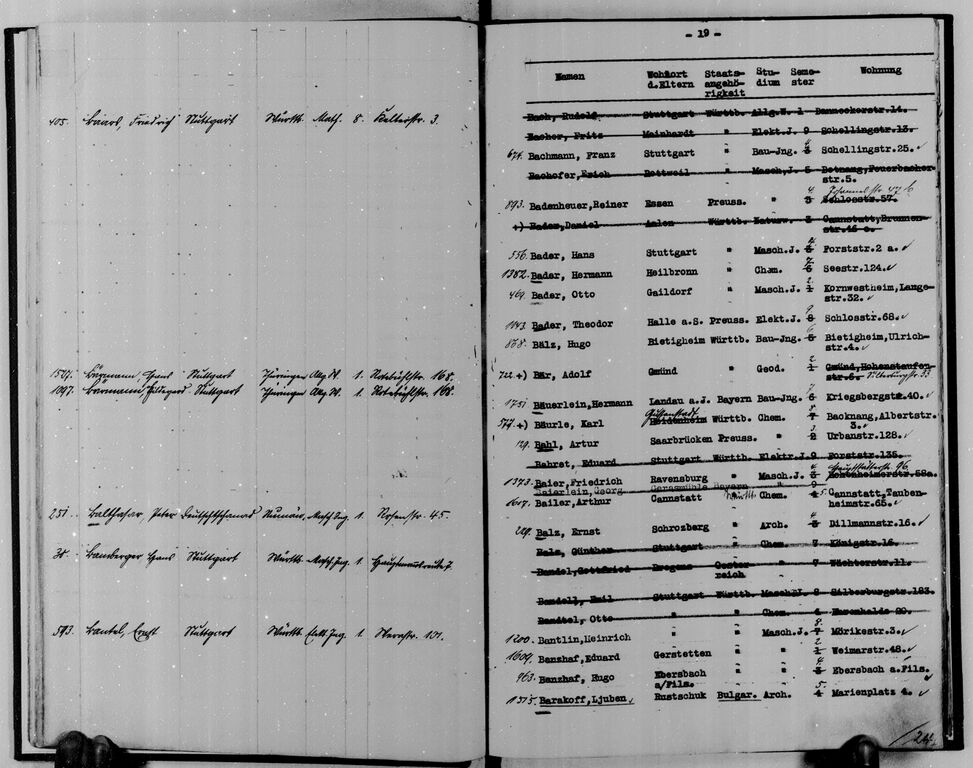 405. Friedrich Stuttgart Württ. Math. 8.
1529. Stuttgart Thüringen 1. 168.
1097. Stuttgart Thüringen 1. 168.
251. Balthasar, Peter 1. Rosenstr. 45.
30. Bamberger, Hans Stuttgart Württ. Masch.Ing. 1.
593. Bantel, Ernst Stuttgart Württ. Elekt.Ing. 1. Werastr. 131.
- 19 -
Namen Wohnort d.Eltern Staats-angehö-rigkeit Stu-dium Seme-ster Wohnung
Bach, Rudolf Stuttgart Württb. Allg.W. 1 Danneckerstr.14.
Bacher, Fritz Mainhardt " Elekt.J. 9 Schellingstr.13.
674. Bachmann, Franz Stuttgart " Bau-Jng. 4 3 Schellingstr.25.
Bachofer,Erich Rottweil " Masch.J. 5 Botnang,Feuerbacher-
str.5.
893. Badenheuer,Reiner Essen Preuss. " 4 3 Schlosstr.57.
+) Bader,Daniel Aalen Württb. Naturw. 3 Cannstatt,Brunnen-
str.46 c.
556. Bader, Hans Stuttgart " Masch.J. 5 Forststr.2 a.
1382. Bader, Hermann Heilbronn " Chem. 7 6 Seestr.124.
469. Bader, Otto Gaildorf " Masch.J. 2 1 Kornwestheim,Lange-
str.32.
1043. Bader, Theodor Halle a.S. Preuss. Elekt.J. 9 8 Schlosstr.68.
868. Bälz, Hugo Bietigheim Württb. Bau-Jng. 6 5 Bietigheim,Ulrich-
str.4.
722. +) Bär, Adolf Gmünd " Geod. 2 1 Gmünd,Hohenstaufen-
str.6. Silberburgstr. 33
1751 Bäuerlein,Hermann Landau a.J. Bayern Bau-Jng. 7 6 Kriegsbergstr.40.
577. +) Bäurle, Karl Heidenheim Württb. Chem. 8 7 Backnang,Albertstr.
3.
129. Bahl, Artur Saarbrücken Preuss. " 3 2 Urbanstr.128.
Bahret, Eduard Stuttgart Württb. Elektr.J. 9 Forststr.135.
1373. Baier,Friedrich Ravensburg " Masch.J. 4 3
Baierlein,Georg Bayern " 9
1607. Bailer,Arthur Cannstatt Württ. Chem. 5 4 Cannstatt,Tauben-
heimstr.65.
229. Balz, Ernst Schrozberg " Arch. 4 3 Dillmannstr.16.
Balz, Günther Stuttgart " Chem. 7 Königstr.16.
Bandel,Gottfried Bregenz Oester-
reich " 7 Wächterstr.11.
Bandell, Emil Stuttgart Württb. Masch.J. 8 Silberburgstr.183.
Banditel, Otto " " Chem. 4 Hasenhalde 20.
1200. Bantlin,Heinrich " " Masch.J. 7 Mörikestr.3.
1609. Banzhaf, Eduard Gerstetten " " 2 1 Weimarstr.48.
963. Banzhaf, Hugo Ebersbach " " 4 3 Ebersbach a.Fils.
a/Fils.
1315. Barakoff,Ljuben Rustschuk Bulgar. Arch. 5. 4 Marienplatz 4.